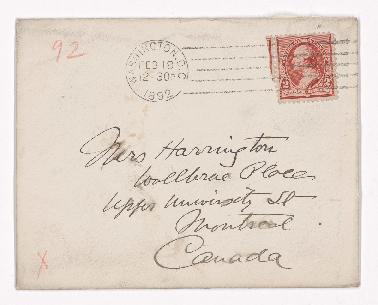 92
WASHINGTON, D.C.
FEB 18
12-30P
1892
Mrs Harrington
Wallbrae Place
Upper University St
Montreal
Canada
X